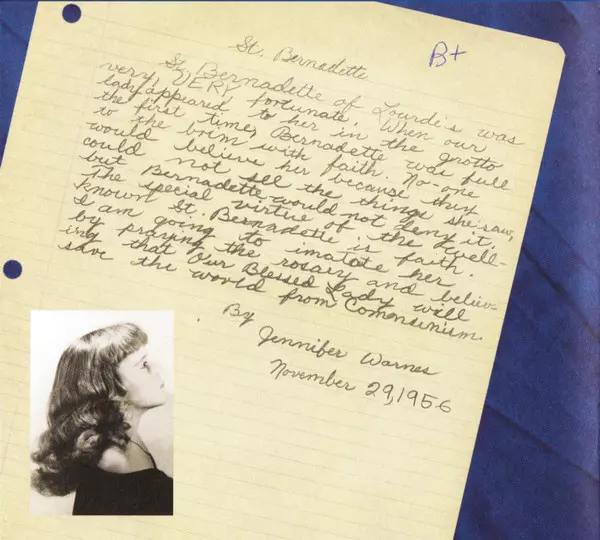 St. Bernadette
B+
St. Bernadette of Lourde's was
very, VERY fortunate. When our
lady appeared to her in the grotto
the first time, Bernadette was full
to the brim with faith. No-one
would believe her because they
could not see the things she saw,
but Bernadette would not deny it.
The special virtue of the well-
known St. Bernadette is faith.
I am going to imatate her
by praying the rosary and believ-
ing that Our Blessed Lady will
save the world from
By
Jennifer Warnes
November 29, 1956